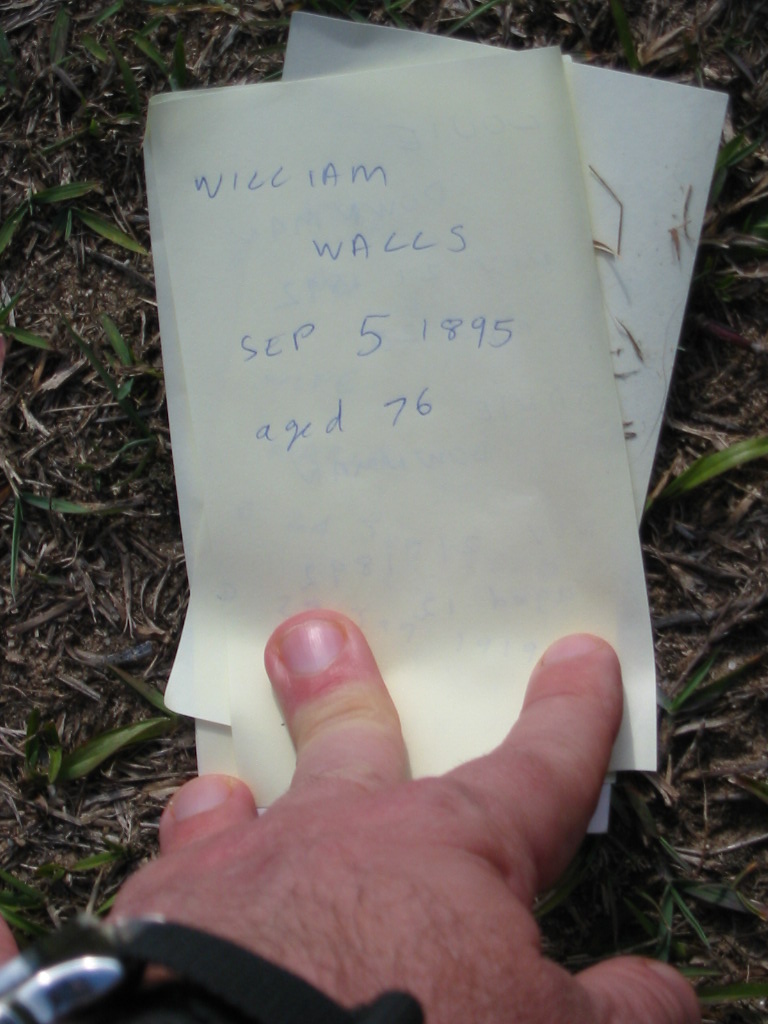 WILLIAM
WALLS
SEP 5 1895
aged 76